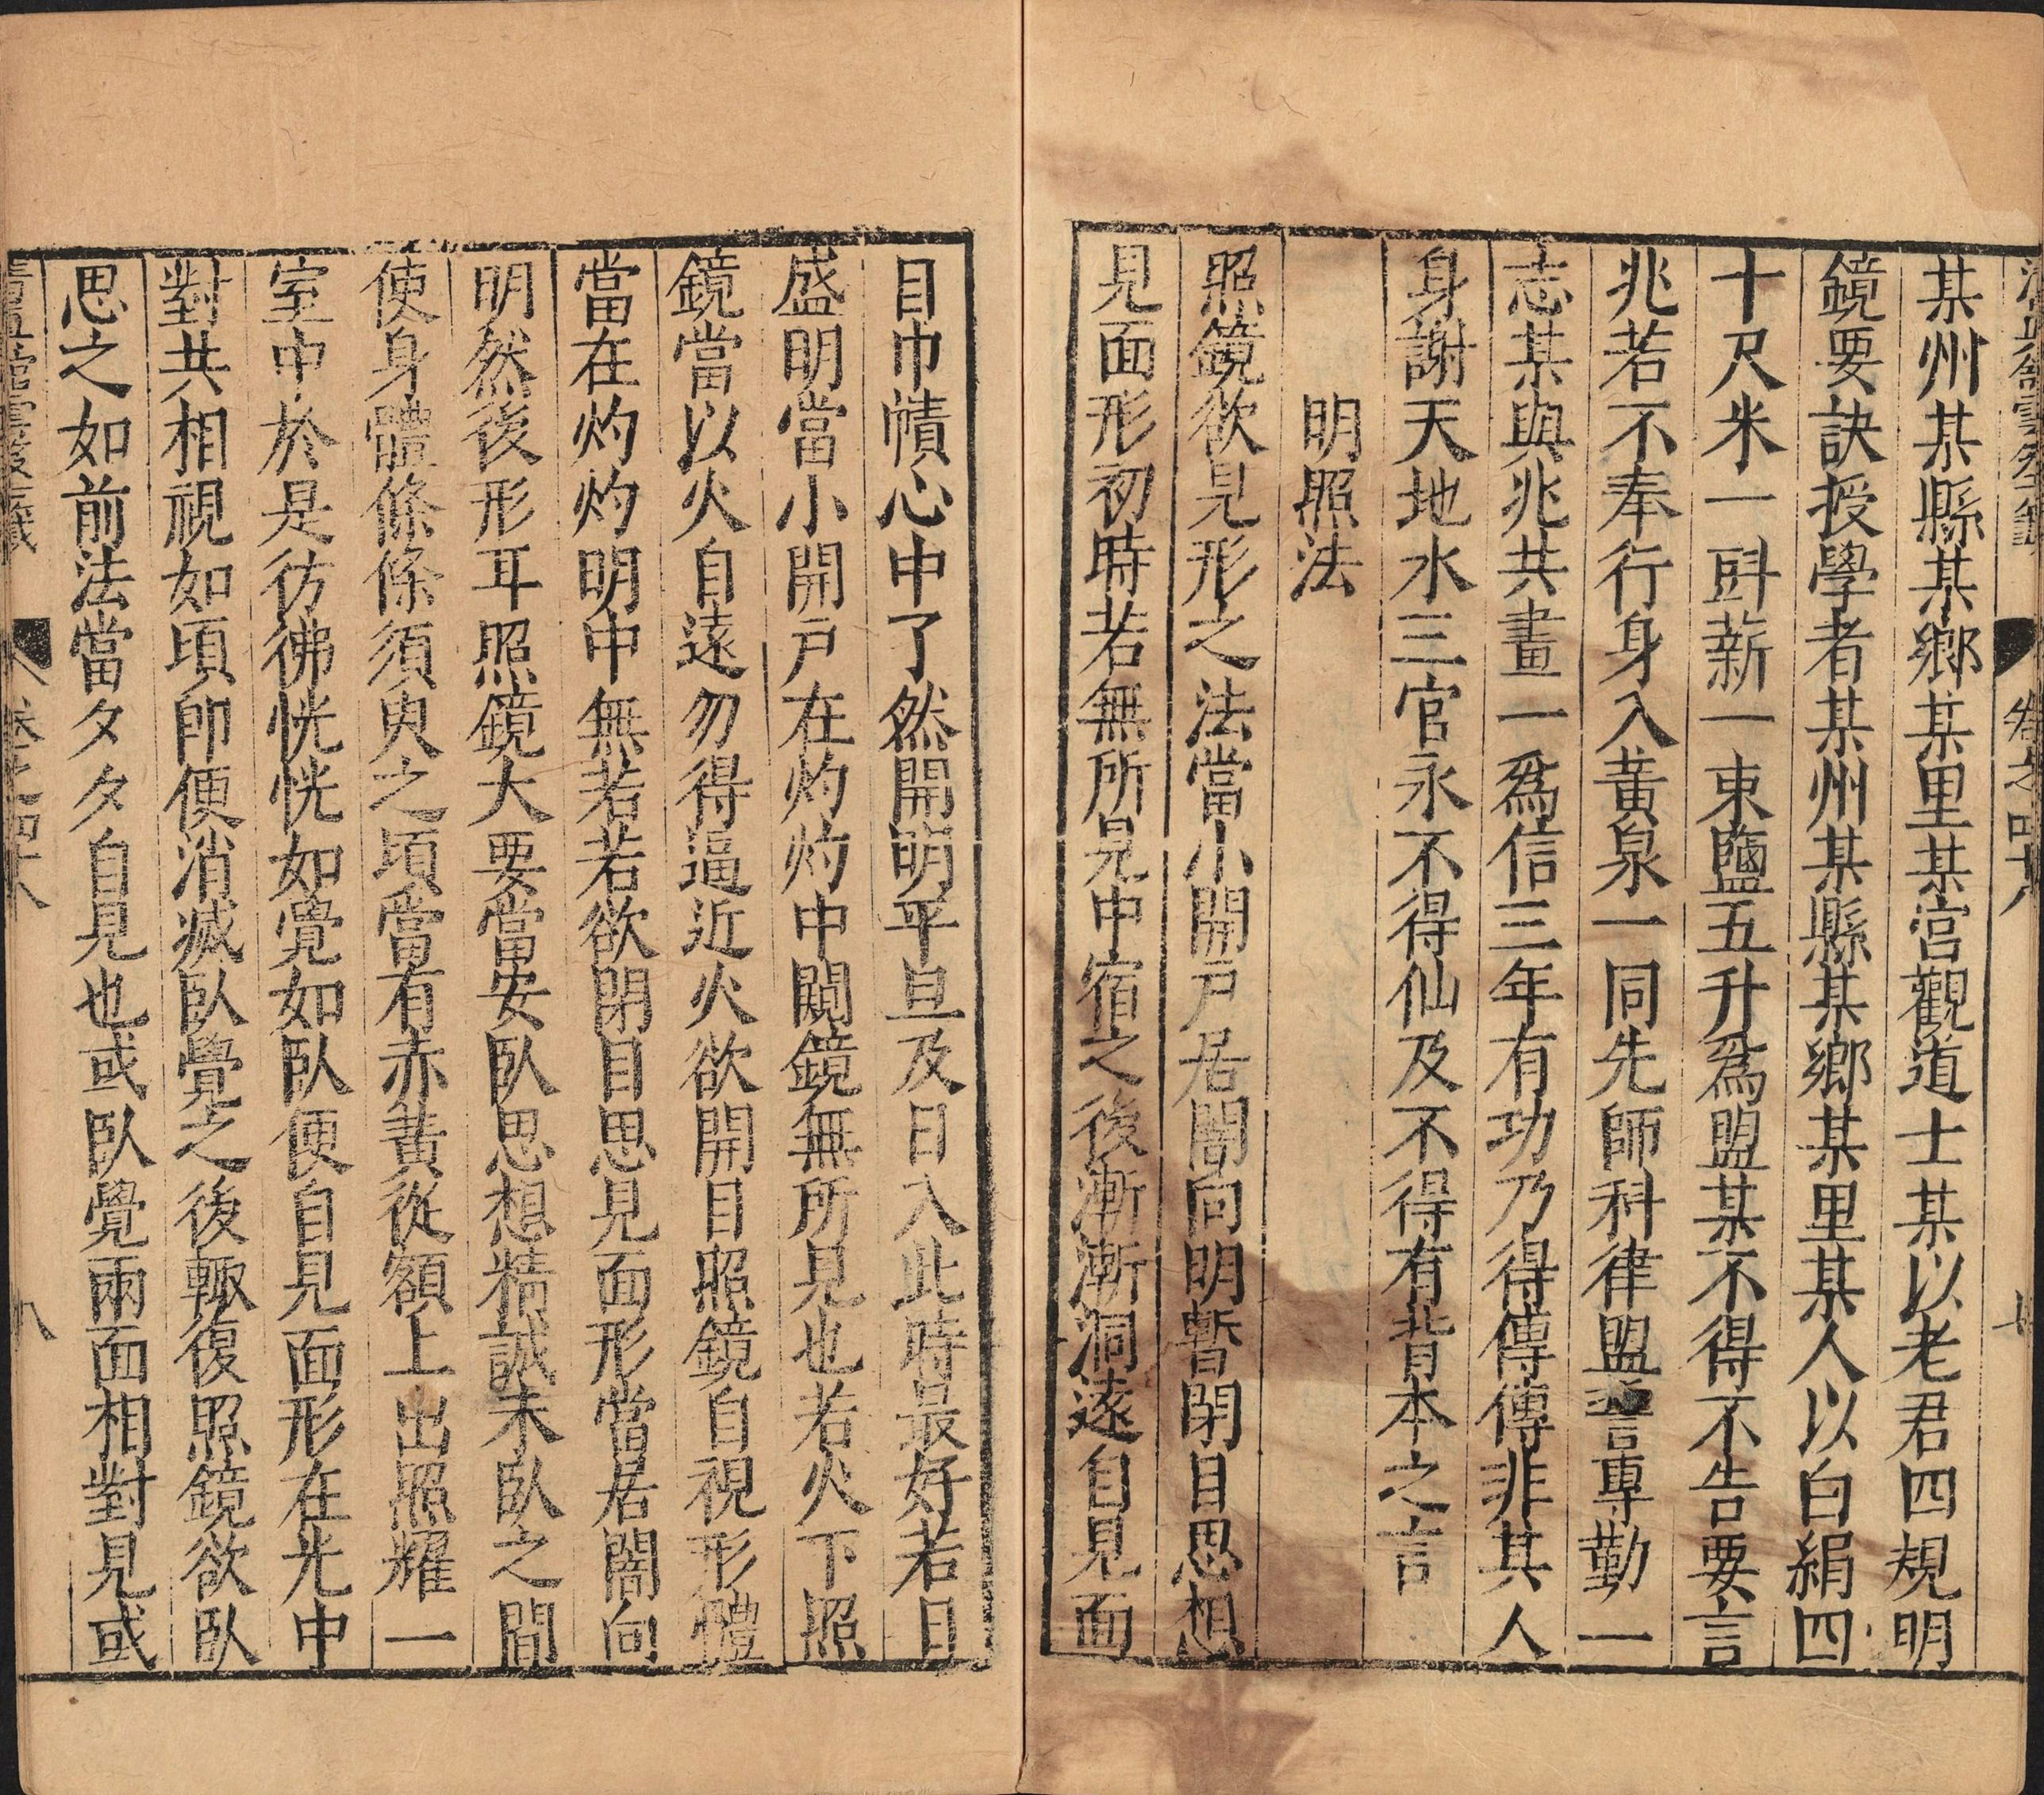 卷之四十八
某州某縣某鄉某里某宮觀道士某以老君四規明
鏡要訣授學者某州某縣某鄉某里某人以白絹四
十尺米一㪷薪一束鹽五升爲盟某不得不告要言
兆若不奉行身入黃泉一同先師科律盟誓專勤一
志某與兆共畫一爲信三年有功乃得傳傳非其人
身謝天地水三官永不得仙及不得有背本之言
明照法
照鏡欲見形之法當小開戸居闇向明暫閉目思想
見面形初時若無所見中宿之後漸漸洞遠自見面
目巾幘心中了然開明平旦及日入此時最好若日
盛明當小開戸在灼灼中闚鏡無所見也若火下照
鏡當以火自遠勿得逼近火欲開目照鏡自視形體
當在灼灼明中無若若欲閉目思見面形當居闇向
明然後形耳照鏡大要當安臥思想精誠未臥之間
使身體條條須臾之頃當有赤黃從額上出照耀一
室中於是彷彿恍恍如覺如臥便自見面形在光中
對共相視如頃卽便消滅臥覺之後輙復照鏡欲臥
思之如前法當夕夕自見也或臥覺兩面相對見或
卷之四十八
八